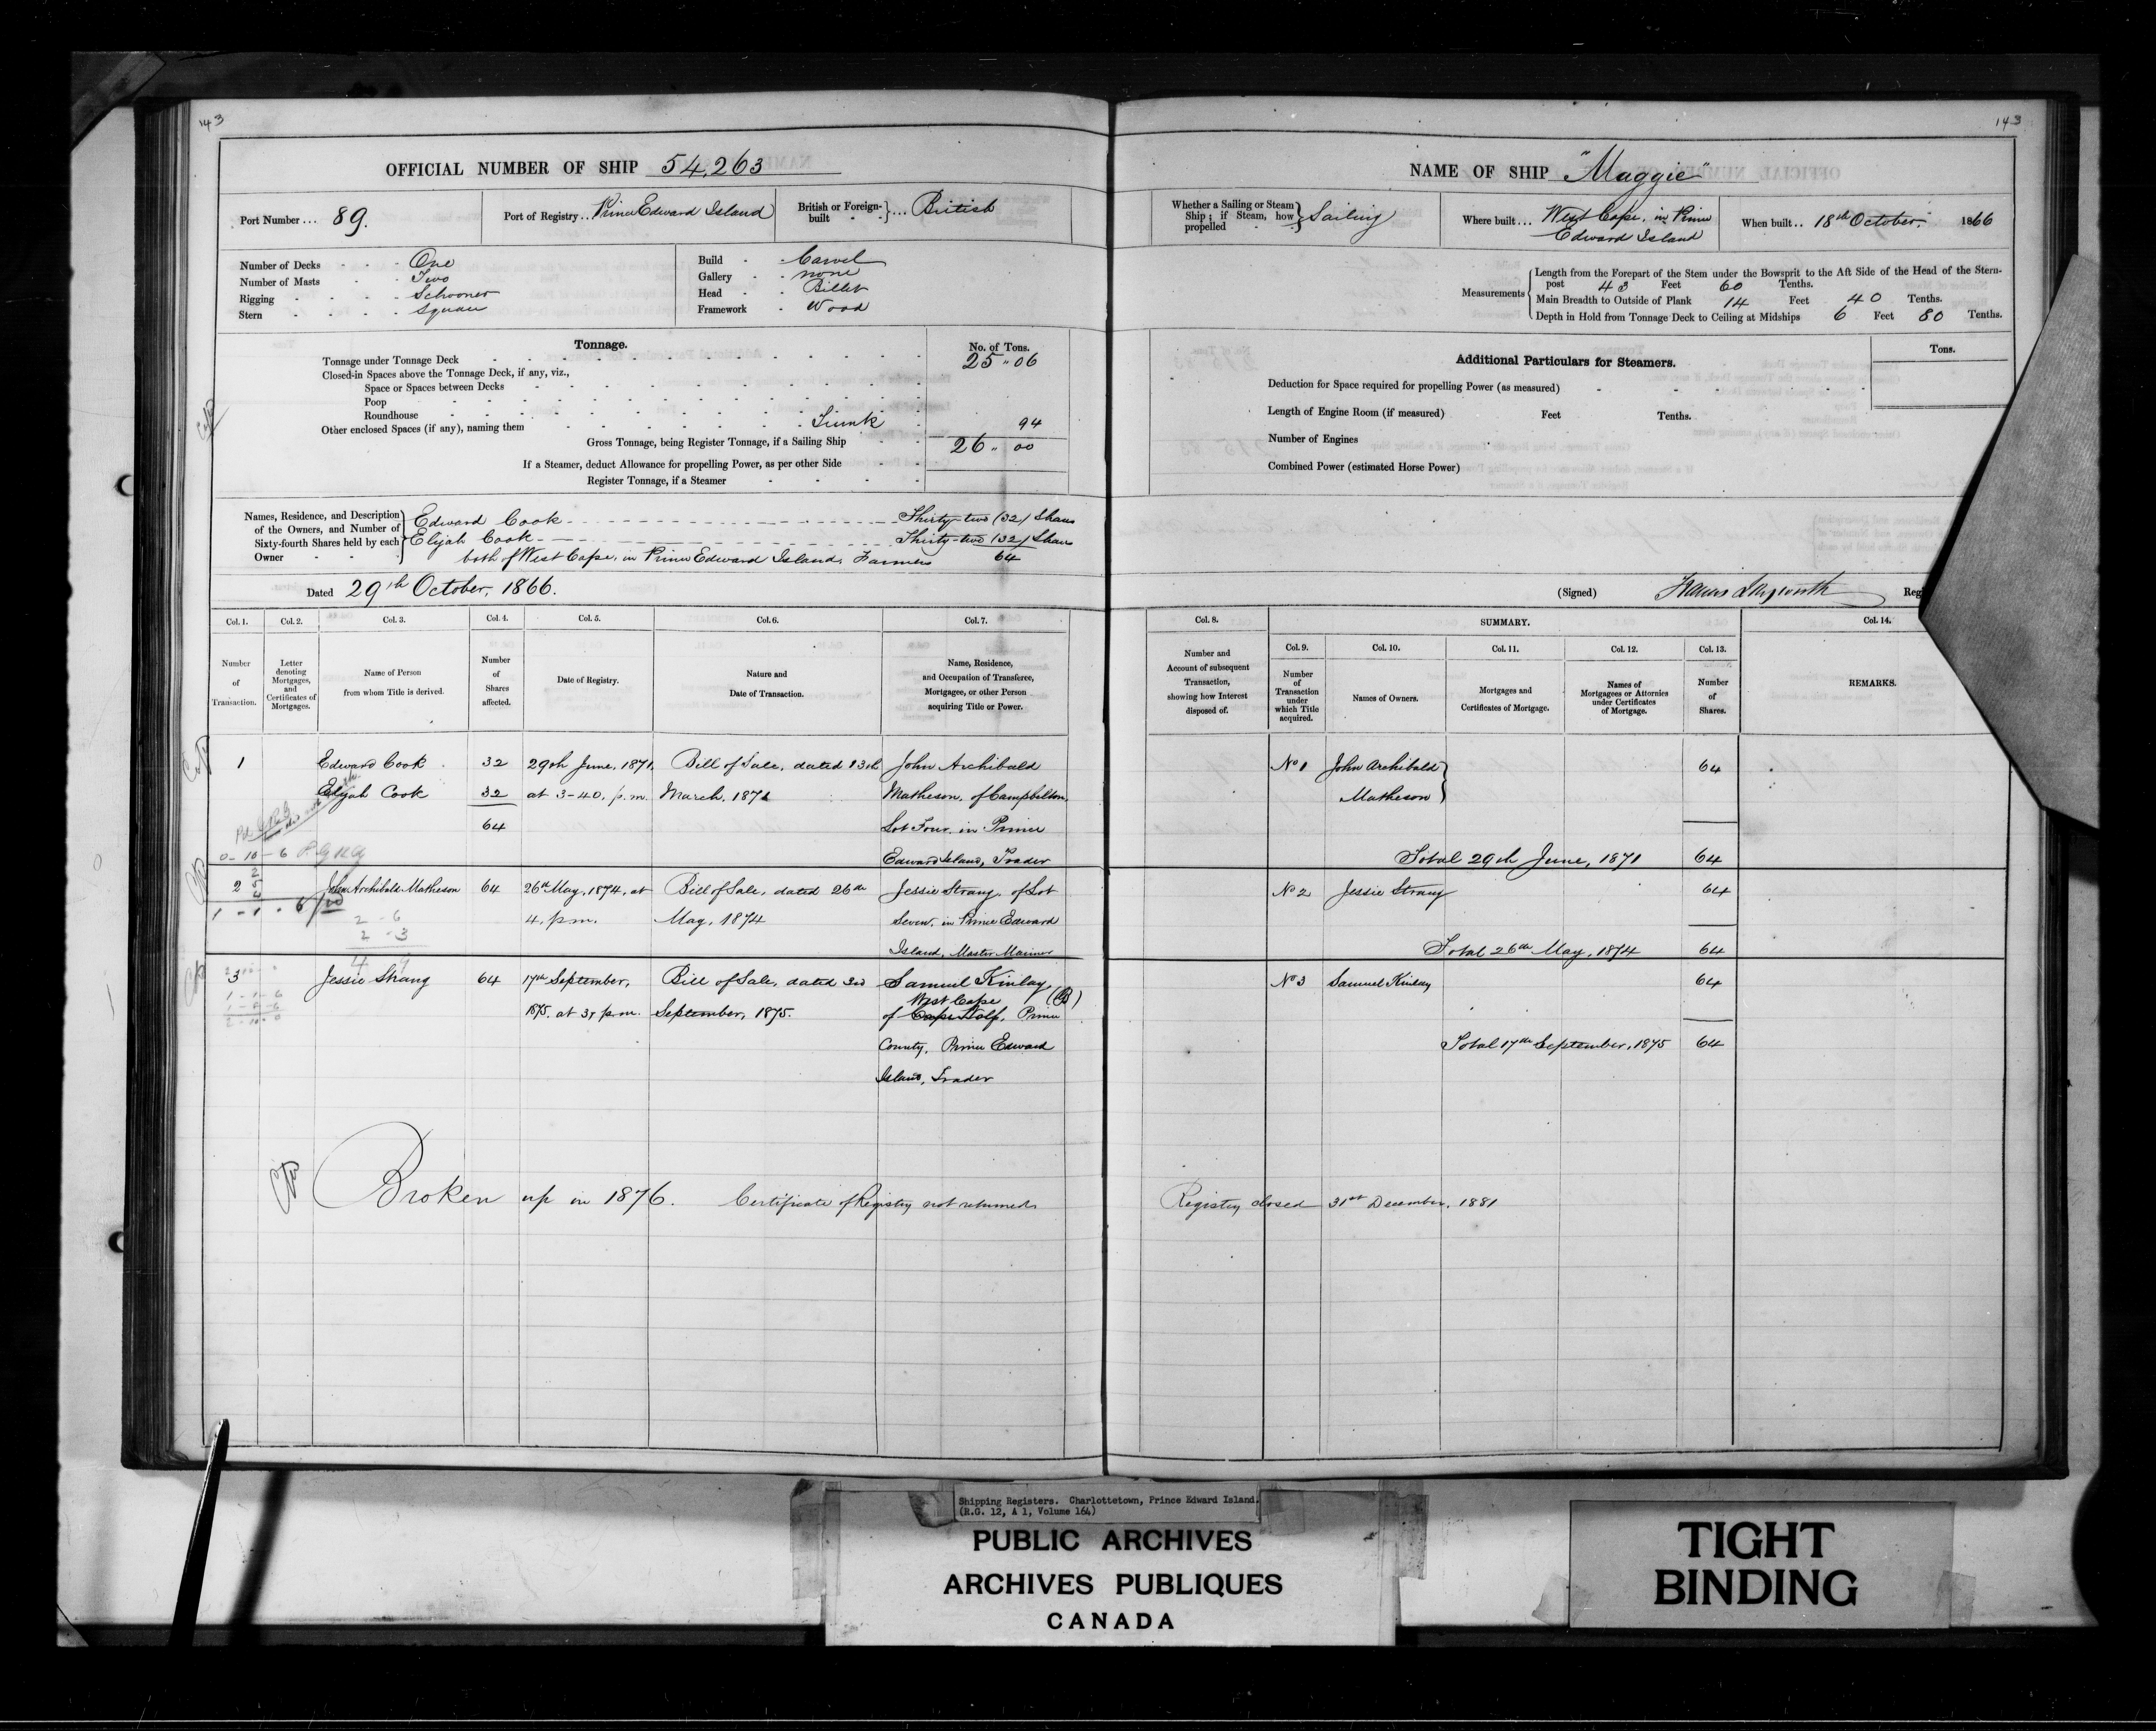 143
OFFICIAL NUMBER OF SHIP 54,263
Port Number ... 89.
Port of Registry .. Prince Edward Island
British or Foreign-built } ... British
Number of Decks - - - One
Number of Masts - - Two
Rigging - - - - Schooner
Stern - - - - Square
Build - - Carvel
Gallery - - none
Head - - Billet
Framework - Wood
Tonnage.
No. of Tons.
Tonnage under Tonnage Deck 25 " 06
Closed-in Spaces above the Tonnage Deck, if any, viz.,
Space or Spaces between Decks
Poop
Roundhouse
Other enclosed Spaces (if any), naming them Trunk 94
Gross Tonnage, being Register Tonnage, if a Sailing Ship 26 " 00
If a Steamer, deduct Allowance for propelling Power, as per other Side
Register Tonnage, if a Steamer
Names, Residence, and Description of the Owners, and Number of Sixty-fourth Shares held by each Owner
Edward Cook - - - Thirty-two (32) Shares
Elijah Cook - - - Thirty-two (32) Shares
both of West Cape, in Prince Edward Island, Farmers 64
Dated 29th October, 1866.
Col. 1. Col. 2. Col. 3. Col. 4. Col. 5. Col. 6. Col. 7.
Number of Transaction.
Letter denoting Mortgages, and Certificates of Mortgages.
Name of Person from whom Title is derived.
Number of Shares affected.
Date of Registry.
Nature and Date of Transaction.
Name, Residence, and Occupation of Transferee, Mortgagee, or other Person acquiring Title or Power.
1 Edward Cook 32 29th June, 1871, Bill of Sale, dated 13th John Archibald
Elijah Cook 32 at 3-40, p.m. March, 1871 Matheson, of Campbelton,
64 Lot Four, in Prince
0-10-6 Edward Island, Trader
2 John Archibald Matheson 64 26th May, 1874, at Bill of Sale, dated 26th Jessie Strang, of Lot
1-1-6 4, p.m. May, 1874 Seven, in Prince Edward
2-6
2-3
Island, Master Mariner
3 Jessie Strang 64 17th September, Bill of Sale, dated 3rd Samuel Kinlay,
West Cape (B)
1875, at 3, p.m. September, 1875. of Cape Wolf, Prince
County, Prince Edward
Island, Trader
Broken up in 1876. Certificate of Registry not returned
143
NAME OF SHIP "Maggie"
Whether a Sailing or Steam Ship; if Steam, how propelled } Sailing
Where built ... West Cape, in Prince Edward Island
When built .. 18th October, 1866
Measurements
Length from the Forepart of the Stem under the Bowsprit to the Aft Side of the Head of the Stern-
post 43 Feet 60 Tenths.
Main Breadth to Outside of Plank 14 Feet 40 Tenths.
Depth in Hold from Tonnage Deck to Ceiling at Midships 6 Feet 80 Tenths.
Additional Particulars for Steamers.
Tons.
Deduction for Space required for propelling Power (as measured)
Length of Engine Room (if measured) Feet Tenths.
Number of Engines
Combined Power (estimated Horse Power)
(Signed) Reg
Col. 8. SUMMARY. Col. 14.
Col. 9. Col. 10. Col. 11. Col. 12. Col. 13.
Number and Account of subsequent Transaction, showing how Interest disposed of.
Number of Transaction under which Title acquired.
Names of Owners.
Mortgages and Certificates of Mortgage.
Names of Mortgagees or Attornies under Certificates of Mortgage.
Number of Shares.
REMARKS.
No 1 John Archibald 64
Matheson
Total 29th June, 1871 64
No 2 Jessie Strang 64
Total 26th May, 1874 64
No 3 Samuel Kinlay 64
Total 17th September, 1875 64
Registry closed 31st December, 1881
Shipping Registers. Charlottetown, Prince Edward Island.
(R.G. 12, A 1, Volume 164)
PUBLIC ARCHIVES
ARCHIVES PUBLIQUES
CANADA
TIGHT
BINDING